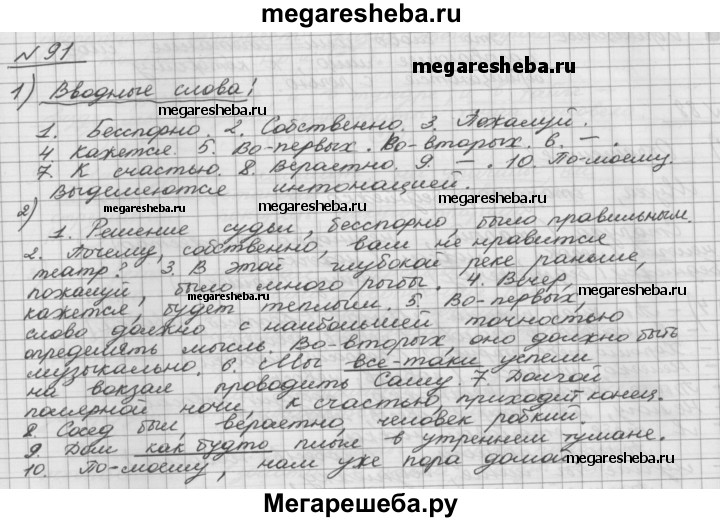 megaresheba.ru
№ 91
megaresheba.ru
1) Вводные слова!
megaresheba.ru
1. Бесспорно. 2. Собственно. 3. Пожалуй.
4. Кажется. 5. Во-первых. Во-вторых. 6. — .
megaresheba.ru
7. К счастью. 8. Вераетно. 9. — . 10. По-моему.
Выделяются интонацией.
megaresheba.ru
2)
1. Решение судьи, бесспорно, было правильным.
2. Почему, собственно, вам не нравится
театр? 3. В этой глубокой реке раньше,
megaresheba.ru
пожалуй, было много рыбы. 4. Вечер,
кажется, будет теплым. 5. Во-первых,
слово должно с наибольшей точностью
определять мысль. Во-вторых, оно должно быть
музыкально. 6. Мы всё-таки успели
на вокзал проводить Сашу. 7. Долгой
полярной ночи, к счастью приходит конец.
8. Сосед был, вераетно, человек робкий.
9. Дом как будто плыл в утреннем тумане.
10. По-моему, нам уже пора домой.
megaresheba.ru
Мегарешеба.ру